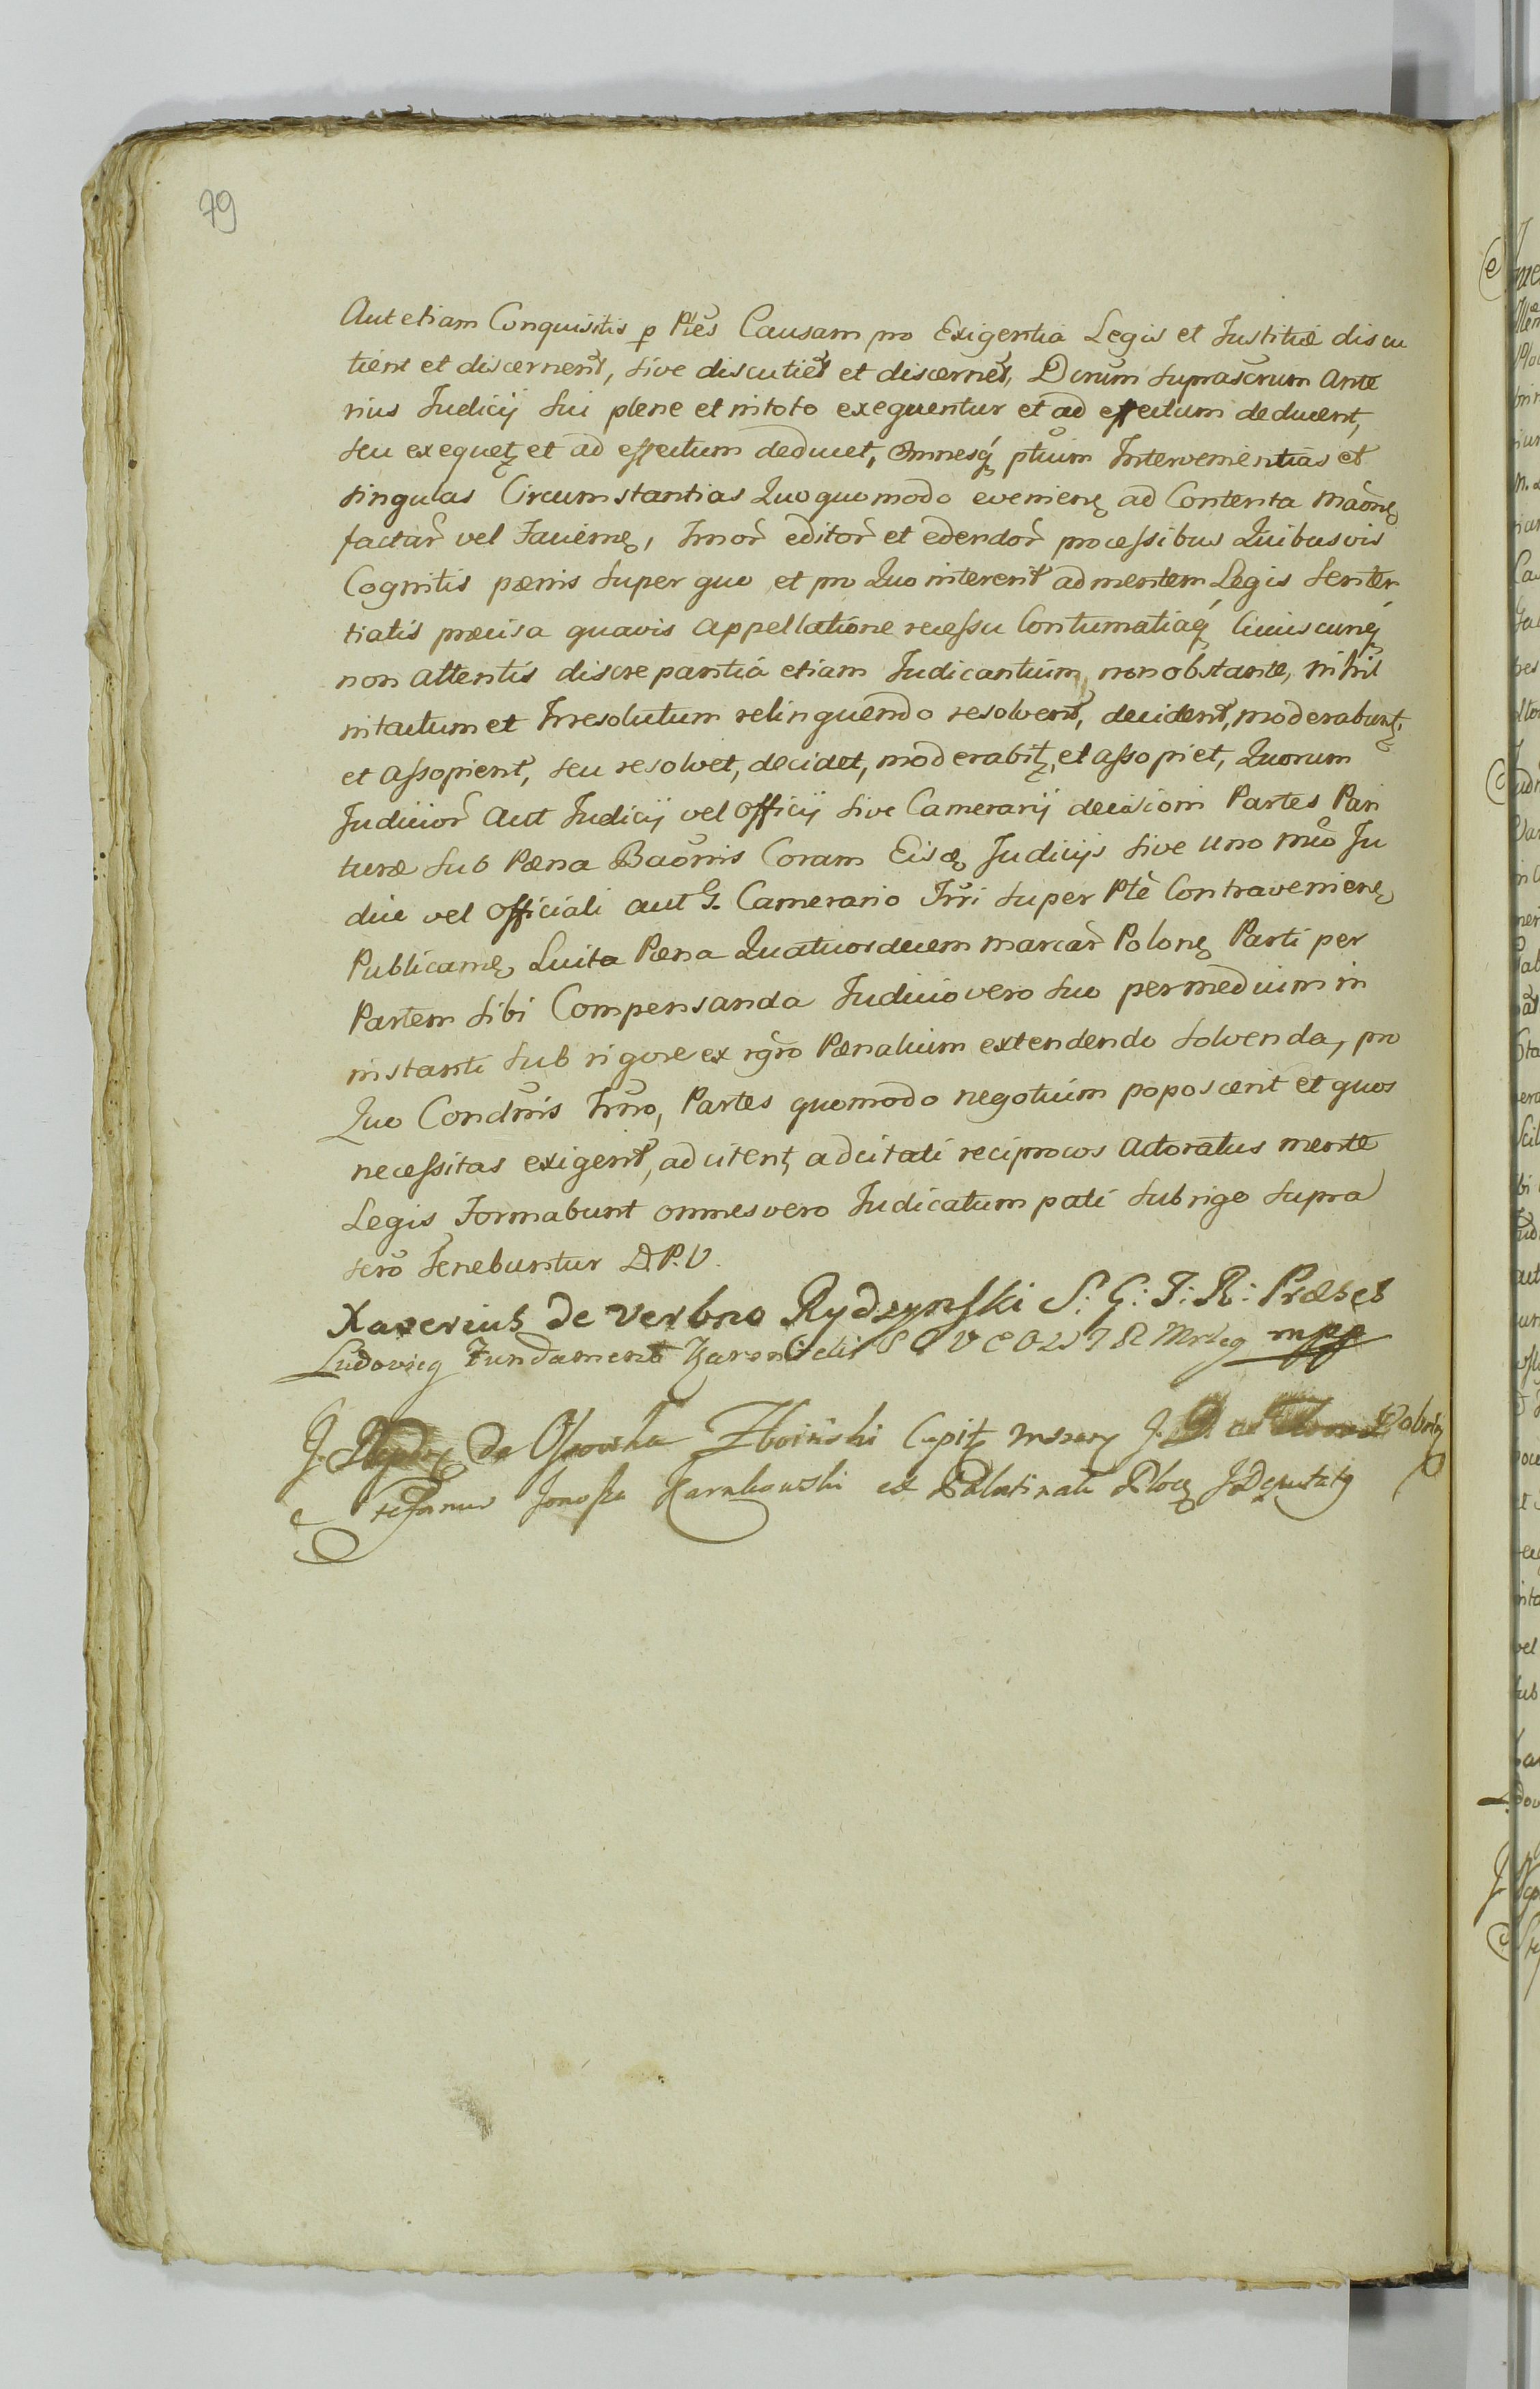 79
Aut etiam Conquisitis p Ptes Causam pro Exigentia Legis et Justitiæ discu
tient et discernent, sive discutiet et discernet, Dcrum suprascrum Ante
rius Judicij sui plene et in toto exequentur et ad effectum deducent,
seu exequet et ad effectum deducet, Omnesq ptium Intervenientias et
singulas Circumstantias Quoquomodo evenien ad Contenta
factar vel, Imor editor et edendor processibus Quibusvis
Cognitis pænis super quo et pro Quo intererit ad mentem Legis senten
tiatis præcisa quavis Appellatione recessu Contumatiaq Cuiuscunq
non attentis discrepantiâ etiam Judicantium non obstante, nihil
intactum et Irresolutum relinquendo resolvent, decident, moderabunt
et assopient, seu resolvet, decidet, moderabit, et assopiet, Quorum
Judicior Aut Judicij vel Officij sive Camerarij decisioni Partes Pari
turæ sub Pæna Baonis Coram Eisd Judicijs sive uno mõ Ju
dicie vel Officiali aut G. Camerario Irri super Pte Contravenien
Publican, Luita Pæna Quatuordecem marcar Polon Parti per
Partem sibi Compensanda Judicio vero suo per medium in
instanti sub rigore ex rgro Pænalium extendendo solvenda, pro
Quo Condnis Irno, Partes quomodo negotium poposcerit et quos
necessitas exigerit, adcitent adcitati reciprocos Actoratus mente
Legis Formabunt omnes vero Judicatum pati sub rigo supra
scro Tenebuntur D.P.V.
Xaverius de Verbno Rydzynski S: G: T: R: Præses
Ludovicq Fundament mpp
J. de Ossowka Zboiński Capit J. Dobrin
Stefanus Jonosza Karnkowski ex Palatinatu Ploc J Deputatq